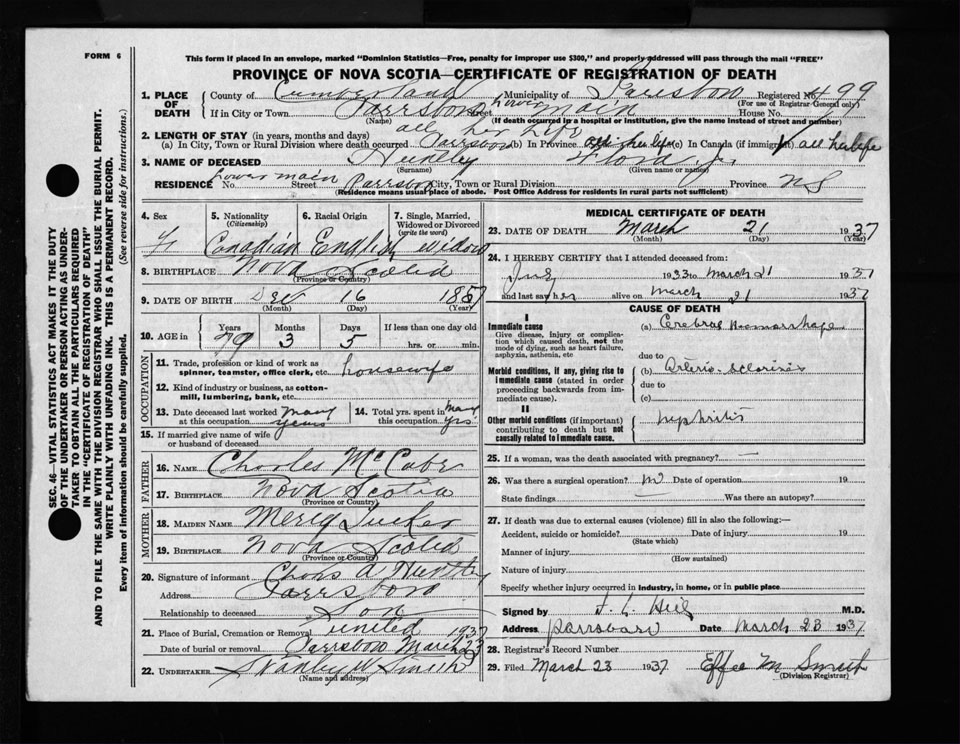 FORM 6
This form if placed in an envelope, marked "Dominion Statistics—Free, penalty for improper use $300," and properly addressed will pass through the mail "FREE"
PROVINCE OF NOVA SCOTIA—CERTIFICATE OF REGISTRATION OF DEATH
1. PLACE OF DEATH
County of Cumberland Municipality of Parrsboro Registered No. 499
(For use of Registrar-General only)
If in City or Town Parrsboro Street Lower Main House No.
(Name) (If death occurred in a hospital or institution, give the name instead of street and number)
2. LENGTH OF STAY (in years, months and days) all her life
(a) In City, Town or Rural Division where death occurred Parrsboro (b) In Province all her life (c) In Canada (if immigrant) all her life
3. NAME OF DECEASED Huntley Flora J.
(Surname) (Given name or names)
RESIDENCE No. Lower main Street Parrsboro City, Town or Rural Division Province NS
(Residence means usual place of abode. Post Office Address for residents in rural parts not sufficient)
4. Sex F
5. Nationality (Citizenship) Canadian
6. Racial Origin English
7. Single, Married, Widowed or Divorced (write the word) widow
8. BIRTHPLACE Nova Scotia
(Province or Country)
9. DATE OF BIRTH Dec 16 1857
(Month) (Day) (Year)
10. AGE in Years 79 Months 3 Days 5 If less than one day old hrs. or min.
OCCUPATION
11. Trade, profession or kind of work as spinner, teamster, office clerk, etc. housewife
12. Kind of industry or business, as cotton-mill, lumbering, bank, etc.
13. Date deceased last worked at this occupation many years
14. Total yrs. spent in this occupation many yrs.
15. If married give name of wife or husband of deceased
FATHER
16. NAME Charles McCabe
17. BIRTHPLACE Nova Scotia
(Province or Country)
MOTHER
18. MAIDEN NAME Tucker
19. BIRTHPLACE Nova Scotia
(Province or Country)
20. Signature of informant Chas A Huntley
Address Parrsboro
Relationship to deceased Son
21. Place of Burial, Cremation or Removal United
Date of burial or removal Parrsboro March 23 1937
22. UNDERTAKER Stanley W Smith
(Name and address)
MEDICAL CERTIFICATE OF DEATH
23. DATE OF DEATH March 21 1937
(Month) (Day) (Year)
24. I HEREBY CERTIFY that I attended deceased from:
1933 to March 21 1937
and last saw her alive on March 21 1937
CAUSE OF DEATH
I
Immediate cause
Give disease, injury or complication which caused death, not the mode of dying, such as heart failure, asphyxia, asthenia, etc
(a) Cerebral Hemorrhage
due to
Morbid conditions, if any, giving rise to immediate cause (stated in order proceeding backwards from immediate cause).
(b) Arterio-sclerosis
due to
(c)
II
Other morbid conditions (if important) contributing to death but not causally related to immediate cause.
Nephritis
25. If a woman, was the death associated with pregnancy? —
26. Was there a surgical operation? no Date of operation 19
State findings — Was there an autopsy?
27. If death was due to external causes (violence) fill in also the following:—
Accident, suicide or homicide? Date of injury 19
(State which)
Manner of injury
(How sustained)
Nature of injury
Specify whether injury occurred in industry, in home, or in public place
Signed by M.D.
Address Parrsboro Date March 23 1937
28. Registrar's Record Number
29. Filed March 23 1937 Effie M Smith
(Division Registrar)
SEC. 46—VITAL STATISTICS ACT MAKES IT THE DUTY
OF THE UNDERTAKER OR PERSON ACTING AS UNDER-
TAKER TO OBTAIN ALL THE PARTICULARS REQUIRED
IN THE "CERTIFICATE OF REGISTRATION OF DEATH"
AND TO FILE THE SAME WITH THE DIVISION REGISTRAR WHO SHALL ISSUE THE BURIAL PERMIT.
WRITE PLAINLY WITH UNFADING INK. THIS IS A PERMANENT RECORD.
Every item of information should be carefully supplied. (See reverse side for instructions.)